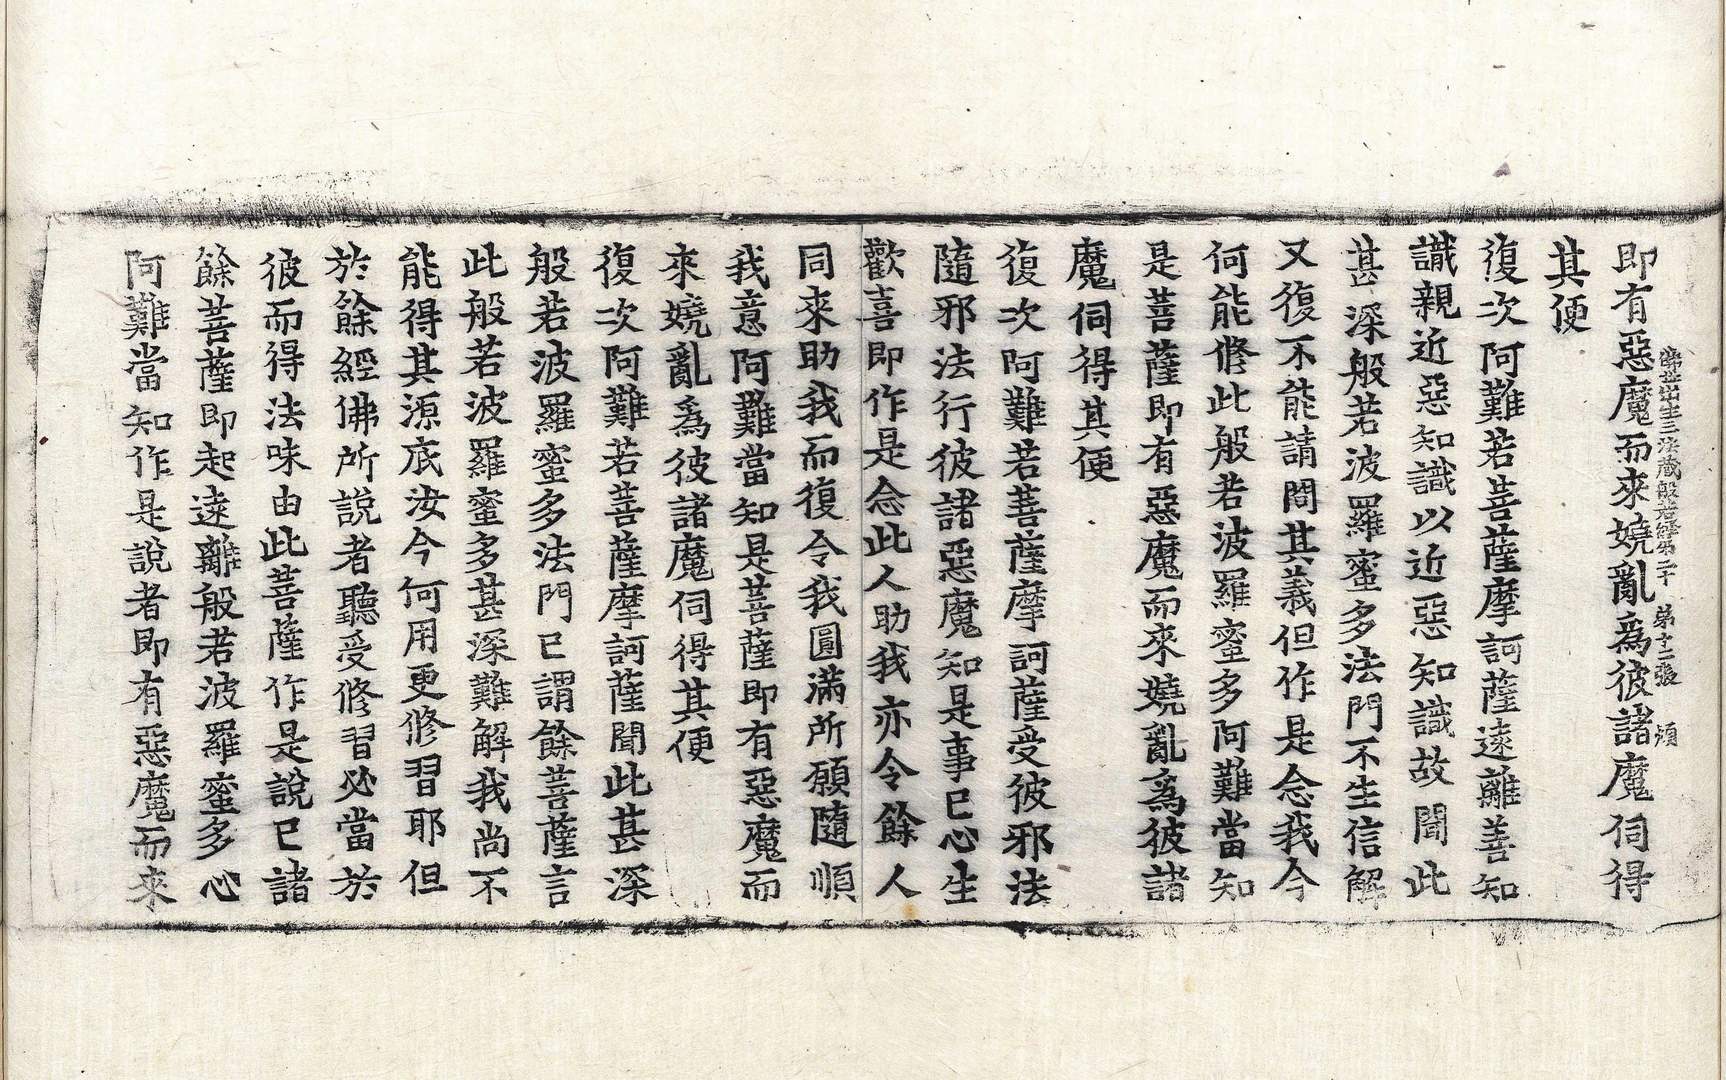 佛母出生三法藏般若經第二十 第十二張 湏
即有惡魔而來嬈亂爲彼諸魔伺得
其便
復次阿難若菩薩摩訶薩遠離善知
識親近惡知識以近惡知識故聞此
甚深般若波羅蜜多法門不生信解
又復不能請問其義但作是念我今
何能修此般若波羅蜜多阿難當知
是菩薩即有惡魔而來嬈亂爲彼諸
魔伺得其便
復次阿難若菩薩摩訶薩受彼邪法
隨邪法行彼諸惡魔知是事已心生
歡喜即作是念此人助我亦令餘人
同來助我而復令我圓滿所願隨順
我意阿難當知是菩薩即有惡魔而
來嬈亂爲彼諸魔伺得其便
復次阿難若菩薩摩訶薩聞此甚深
般若波羅蜜多法門已謂餘菩薩言
此般若波羅蜜多甚深難解我尚不
能得其源底汝今何用更修習耶但
於餘經佛所說者聽受修習必當於
彼而得法味由此菩薩作是說已諸
餘菩薩即起遠離般若波羅蜜多心
阿難當知作是說者即有惡魔而來